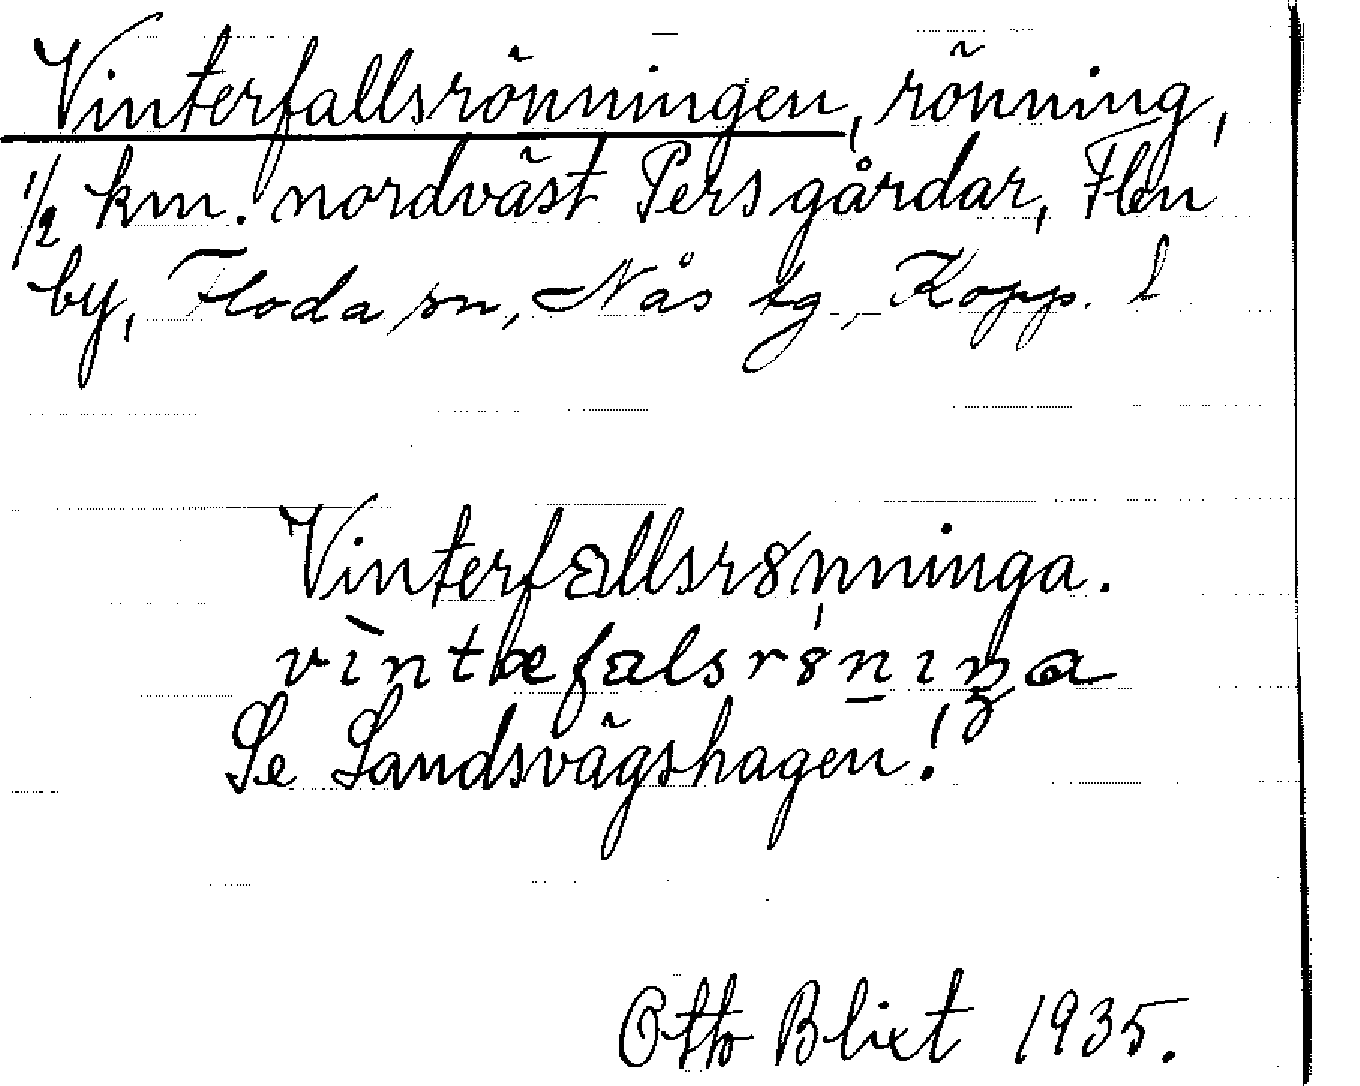 Vinterfallsrönningen, rönning,
1/2 km. nordväst Persgårdar, Flen
by, Floda sn, Nås tg, Kopp. l
Vinterfallsrönninga.
Se Landsvägshagen!
Otto Blixt 1935.